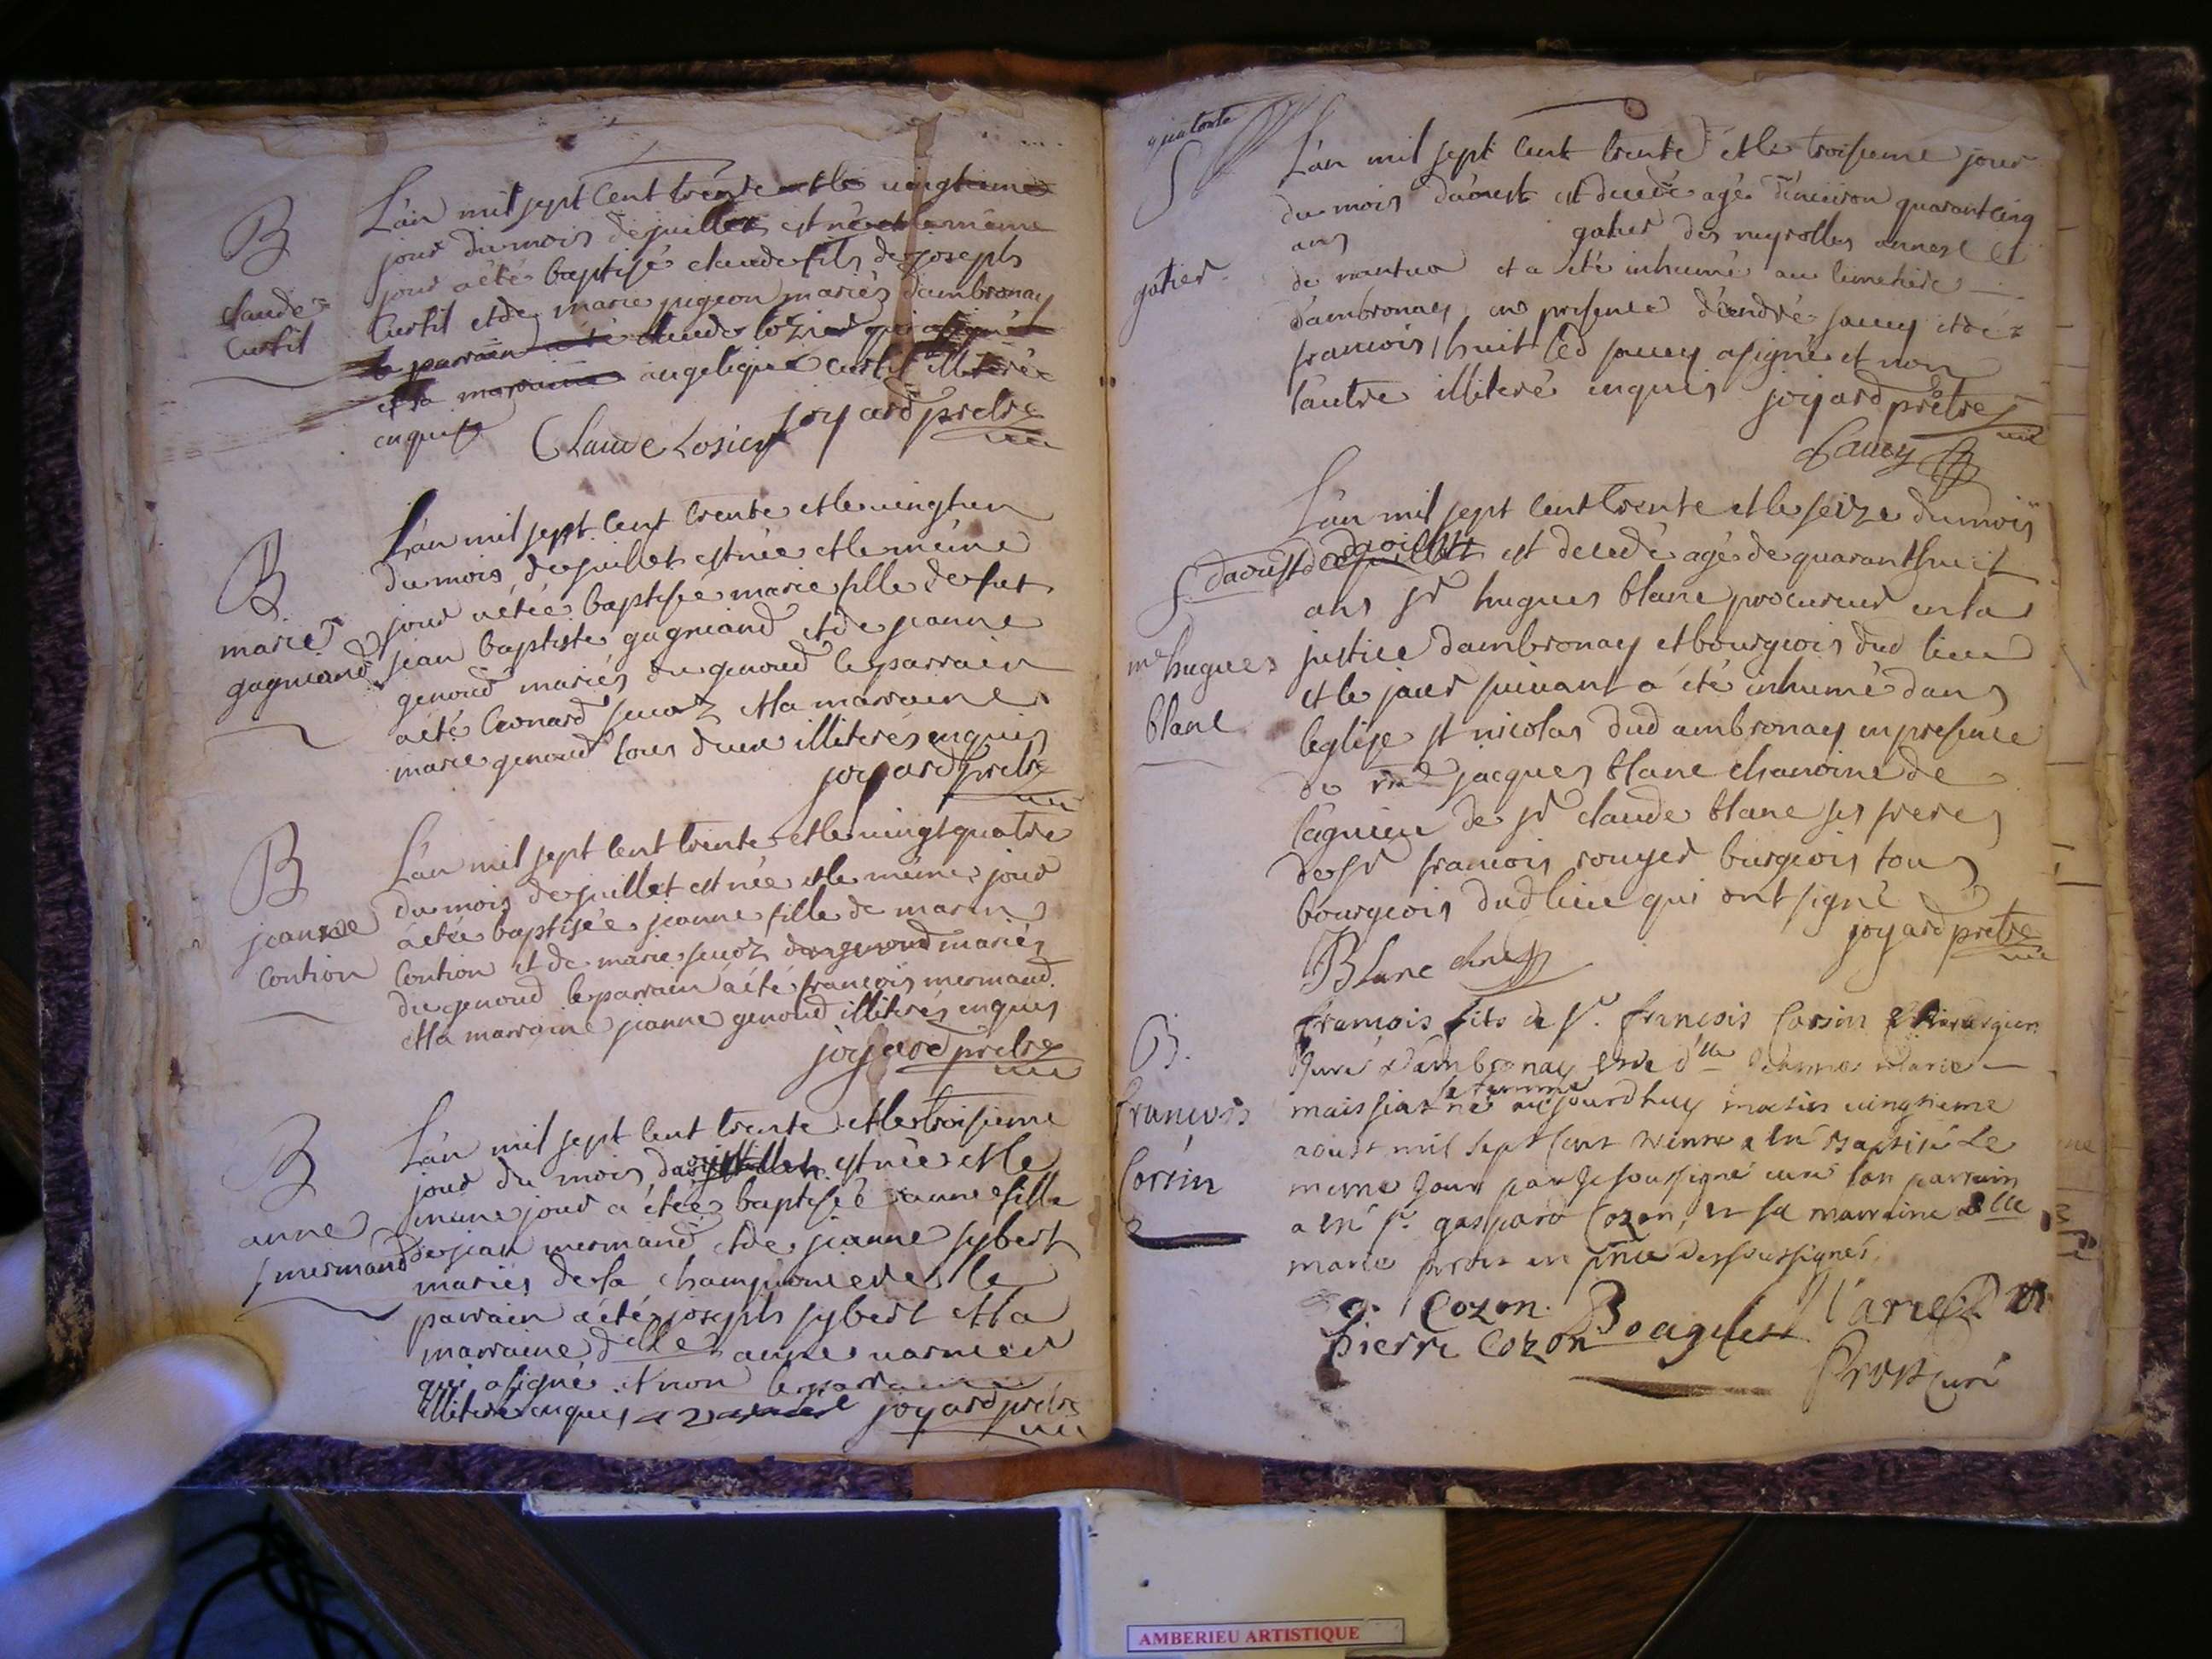 B
claude
Curtil
L'an mil sept cent trente et le vingtieme
jour du mois de juillet est né et le même
jour a été baptisé claude fils de joseph
Curtil et de marie pigeon mariés d'ambronay
le parrain a été claude lozier qui a signé
et la marraine angelique curtil illiterée
enquise
Claude Losier joyard prêtre
B
marie
gagniand
L'an mil sept cent trente et le vingt un
du mois de juillet est née et le même
jour a étée baptisée marie fille de fut
jean baptiste gagniand et de jeanne
genoud mariés du genoud le parrain
a été leonard juvoz et la marraine
marie genoud tous deux illiterés enquis
joyard prêtre
B
jeanne
Contion
L'an mil sept cent trente et le vingt quatre
du mois de juillet est née et le même jour
a étée baptisée jeanne fille de marin
Contion et de marie juvoz du genoud mariés
du genoud le parrain a été françois mermand
et la marraine jeanne genoud illiterés enquis
joyard prêtre
B
anne
mermand
L'an mil sept cent trente et le troisieme
jour du mois d'aoust est née et le
meme jour a étée baptisée anne fille
de jean mermand et de jeanne sybert
mariés de la championiere le
parrain a été joseph sybert et la
marraine delle anne varnier
qui a signé et non le parrain
illiteré enquis joyard prêtre
quatorte
S
gatier
L'an mil sept cent trente et le troisieme jour
du mois d'aoust est decedé agé d'environ quarant cinq
ans gatier des neyrolles annexe
de nantua et a été inhumé au cimetiere
d'ambronay en presence d'andré savey et de
francois huit led savey a signé et non
l'autre illiteré enquis joyard prêtre
Savey
S
me hugues
blanc
L'an mil sept cent trente et le seize du mois
d'aoust de juillet est decedé agé de quarant huit
ans sr hugues blanc procureur en la
justice d'ambronay et bourgeois dud lieu
et le jour suivant a été inhumé dans
leglise st nicolas dud ambronay en presence
de rd jacques blanc chanoine de
lagnieu de sr claude blanc ses freres
de sr francois rouyer burgeois tous
bourgeois dud lieu qui ont signé
joyard prêtre
Blanc
B.
francois
Corsin
francois fils de sr. francois Corsin Chirurgien
Juré d'Ambronay et de dlle Jeanne Marie
sa femme
maissiat né aujourdhuy matin vingtieme
aoust mil sept cent trente a été baptisé le
meme Jour par Je soussigné curé son parrain
a été sr. gaspard Cozon, et sa marraine dlle
marie prost en pnce des soussignés
g. Cozon.
pierre Cozon
Prost curé
AMBERIEU ARTISTIQUE